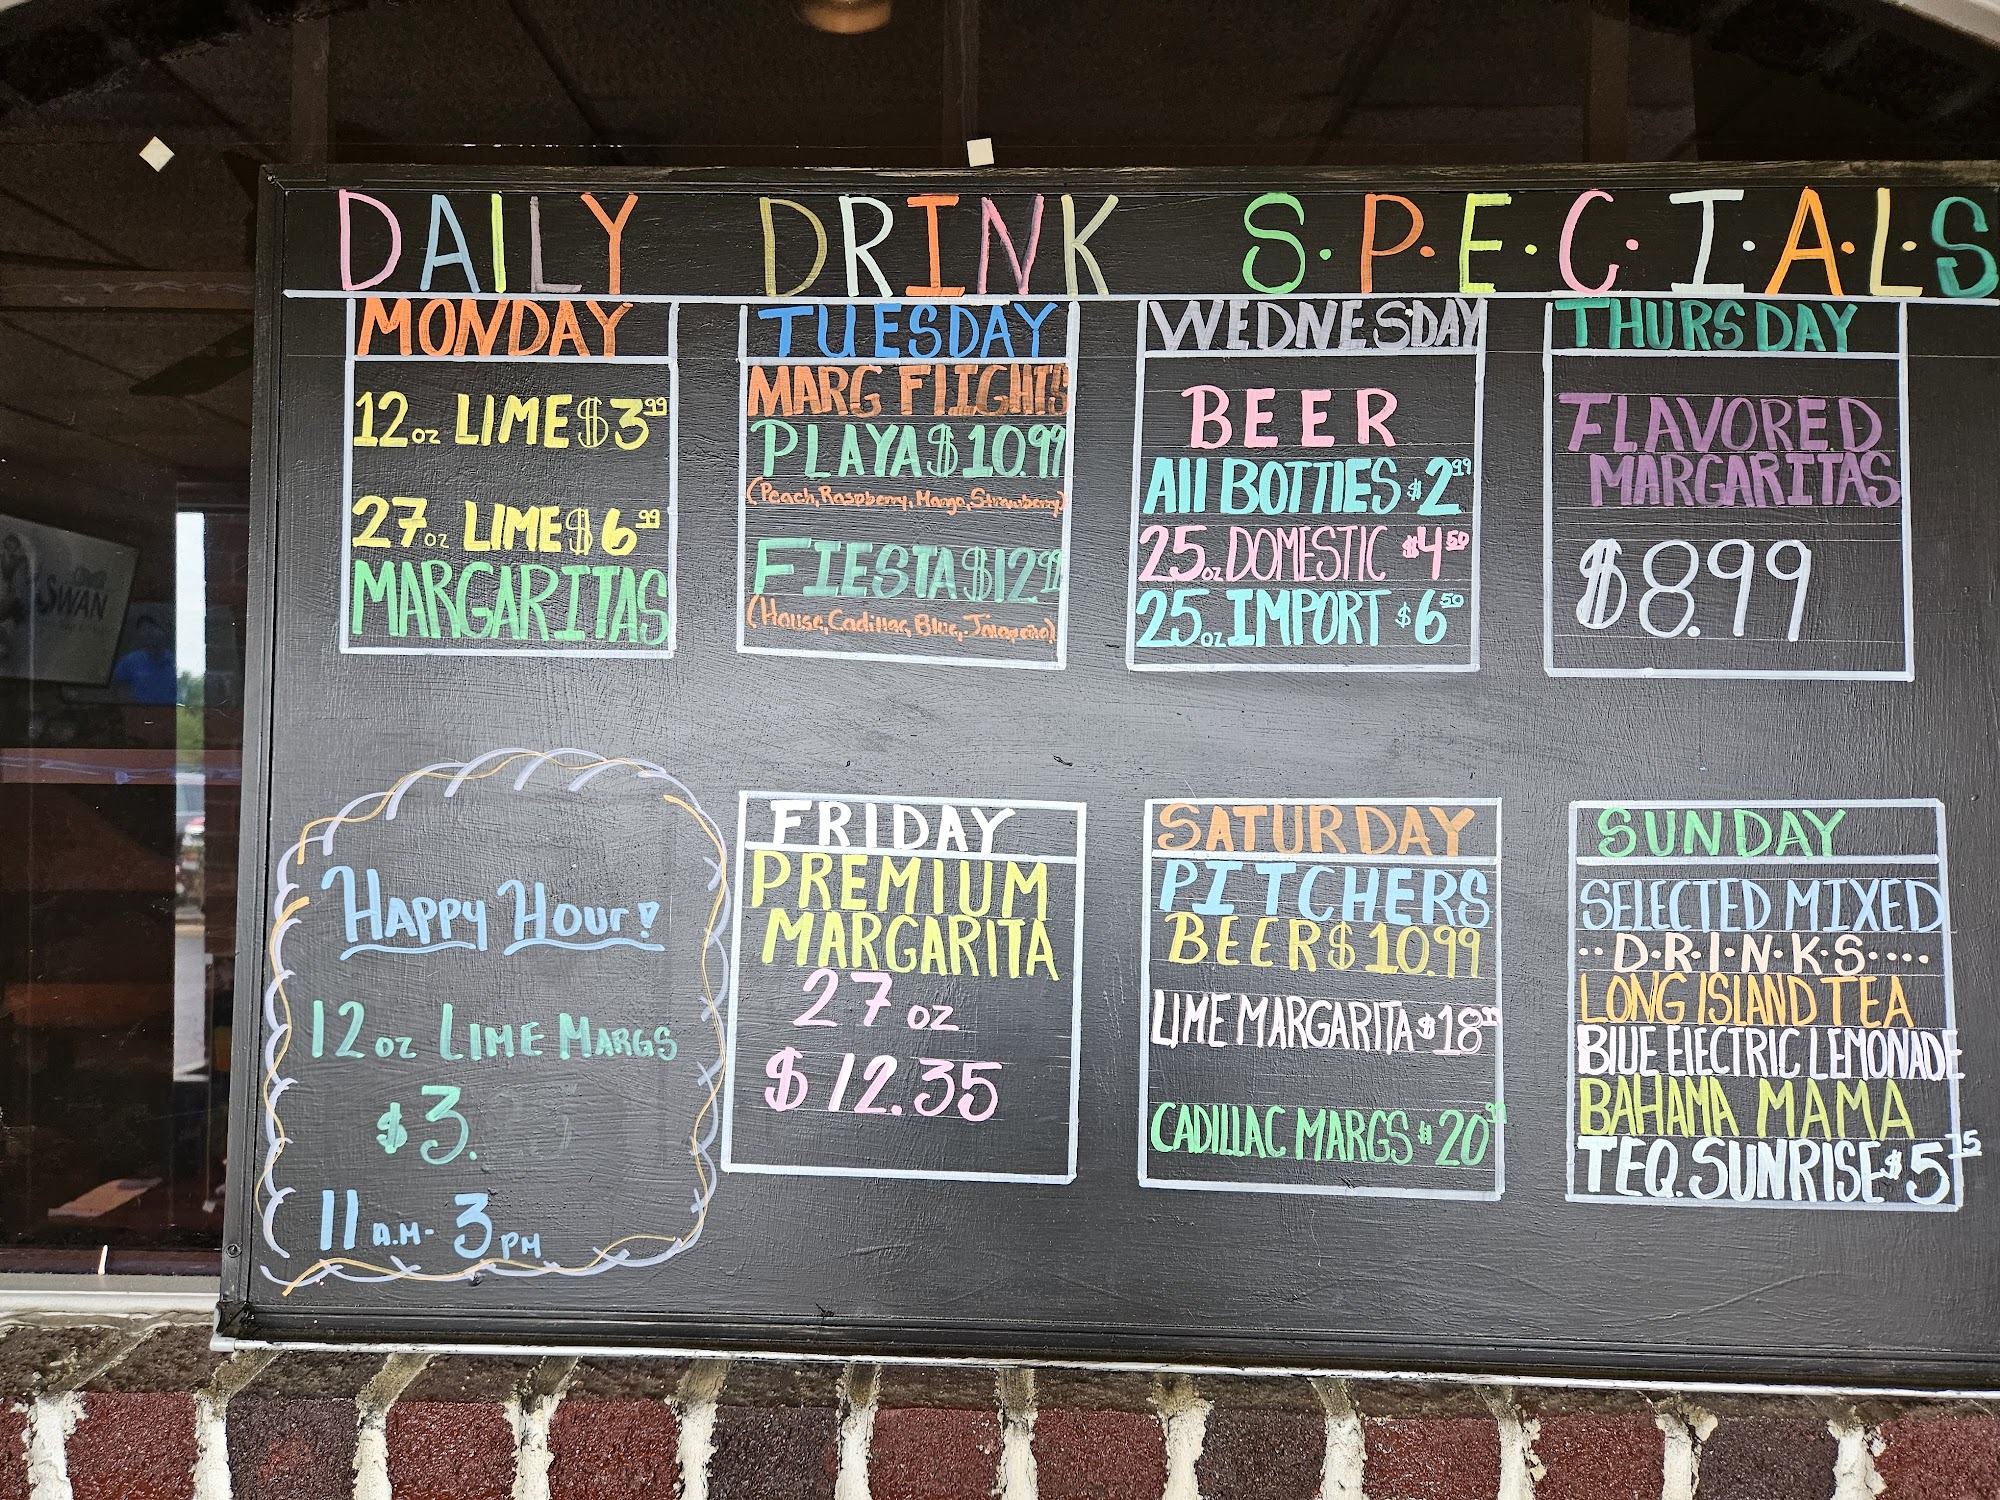 DAILY DRINK S.P.E.C.I.A.L.S
MONDAY
12oz LIME $3.99
27oz LIME $6.99
MARGARITAS
TUESDAY
MARG FLIGHTS
PLAYA $10.99
(Peach, Raspberry, Mango, Strawberry)
FIESTA $12.99
(House, Cadillac, Blue, Jalapeño)
WEDNESDAY
BEER
All BOTTLES $2.99
25oz DOMESTIC $4.50
25oz IMPORT $6.50
THURSDAY
FLAVORED
MARGARITAS
$8.99
HAPPY HOUR!
12oz LIME MARGS
$3.
11 A.M- 3 PM
FRIDAY
PREMIUM
MARGARITA
27 oz
$12.35
SATURDAY
PITCHERS
BEER $10.99
LIME MARGARITA $18.99
CADILLAC MARGS $20.99
SUNDAY
SELECTED MIXED
..D.R.I.N.K.S....
LONG ISLAND TEA
BLUE ELECTRIC LEMONADE
BAHAMA MAMA
TEQ. SUNRISE $5.75
SWAN